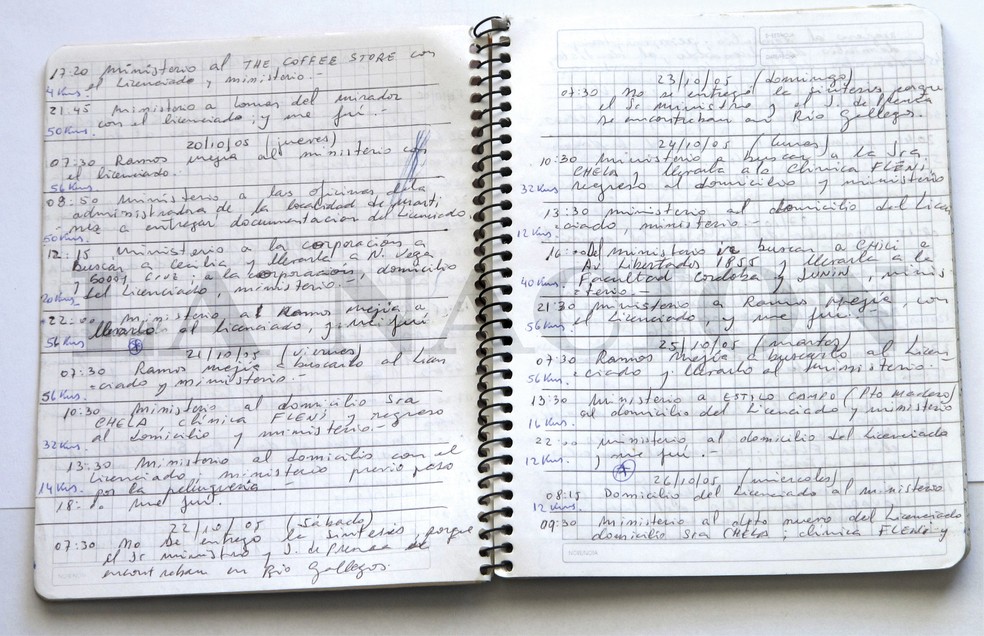 17:20 Ministerio al THE COFFEE STORE con
4 Kms. el Licenciado y ministerio.-
21.45 Ministerio a Lomas del Mirador
50 Kms. con el licenciado, y me fuí.-
20/10/05 (jueves)
07:30 Ramos Mejía al ministerio con
el licenciado.
56 Kms
08:50 Ministerio a las oficinas de la
administradora de la localidad de Marti
nez a entregar documentacion del Licenciado.
50 Kms.
12:15 Ministerio a la corporación a
buscar a Cecilia y llevarla a N. Vega
y Godoy Cruz, a la corporación, domicilio
20 Kms del Licenciado, ministerio.-
22:00 ministerio al Ramos Mejía a
llevarlo al licenciado, y me fuí
56 Kms
21/10/05 (viernes)
07:30 Ramos Mejía a buscarlo al Licen
=ciado y ministerio.-
56 Kms
10:30 Ministerio al domicilio Sra
CHELA, clínica FLENI y regreso
al domicilio y ministerio.-
32 Kms
13:30 Ministerio al domicilio con el
Licenciado, ministerio previo paso
14 Kms. por la peluquería.-
18: me fuí.
22/10/05 (Sábado)
07:30 No se entrego la Síntesis, porque
el Sr ministro y S. de Prensa se
encontraban en Río Gallegos.
23/10/05 (domingo)
07:30 No se entregó la síntesis porque
el Sr Ministro y el S. de Prensa
se encontraban en Río Gallegos.
24/10/05 (lunes)
10:30 Ministerio a buscar a la Sra
CHELA y llevarla a la Clínica FLENI,
32 Kms regreso al domicilio y ministerio
13:30 ministerio al domicilio del Licen
12 Kms. =ciado, ministerio.-
16:00 Del ministerio ir buscar a CHICHI a
Av. Libertador 1855 y llevarla a la
40 Kms. Facultad Cordoba y JUNIN, minis
=terio.-
21:30 Ministerio a Ramos Mejía, con
56 Kms. el Licenciado, y me fuí.-
25/10/05 (martes)
07:30 Ramos Mejía a buscarlo al Licen
56 Kms. =ciado y llevarlo al ministerio.
13:30 Ministerio a ESTILO CAMPO (Pto Madero)
al domicilio del Licenciado y ministerio
16 Kms.
22:00 ministerio al domicilio del Licenciado
12 Kms. y me fuí.-
26/10/05 (miércoles)
08:15 Domicilio del Licenciado al ministerio
12 Kms.
09:30 Ministerio al depto nuevo del Licenciado
domicilio Sra CHELA, clínica FLENI y
LA NACION